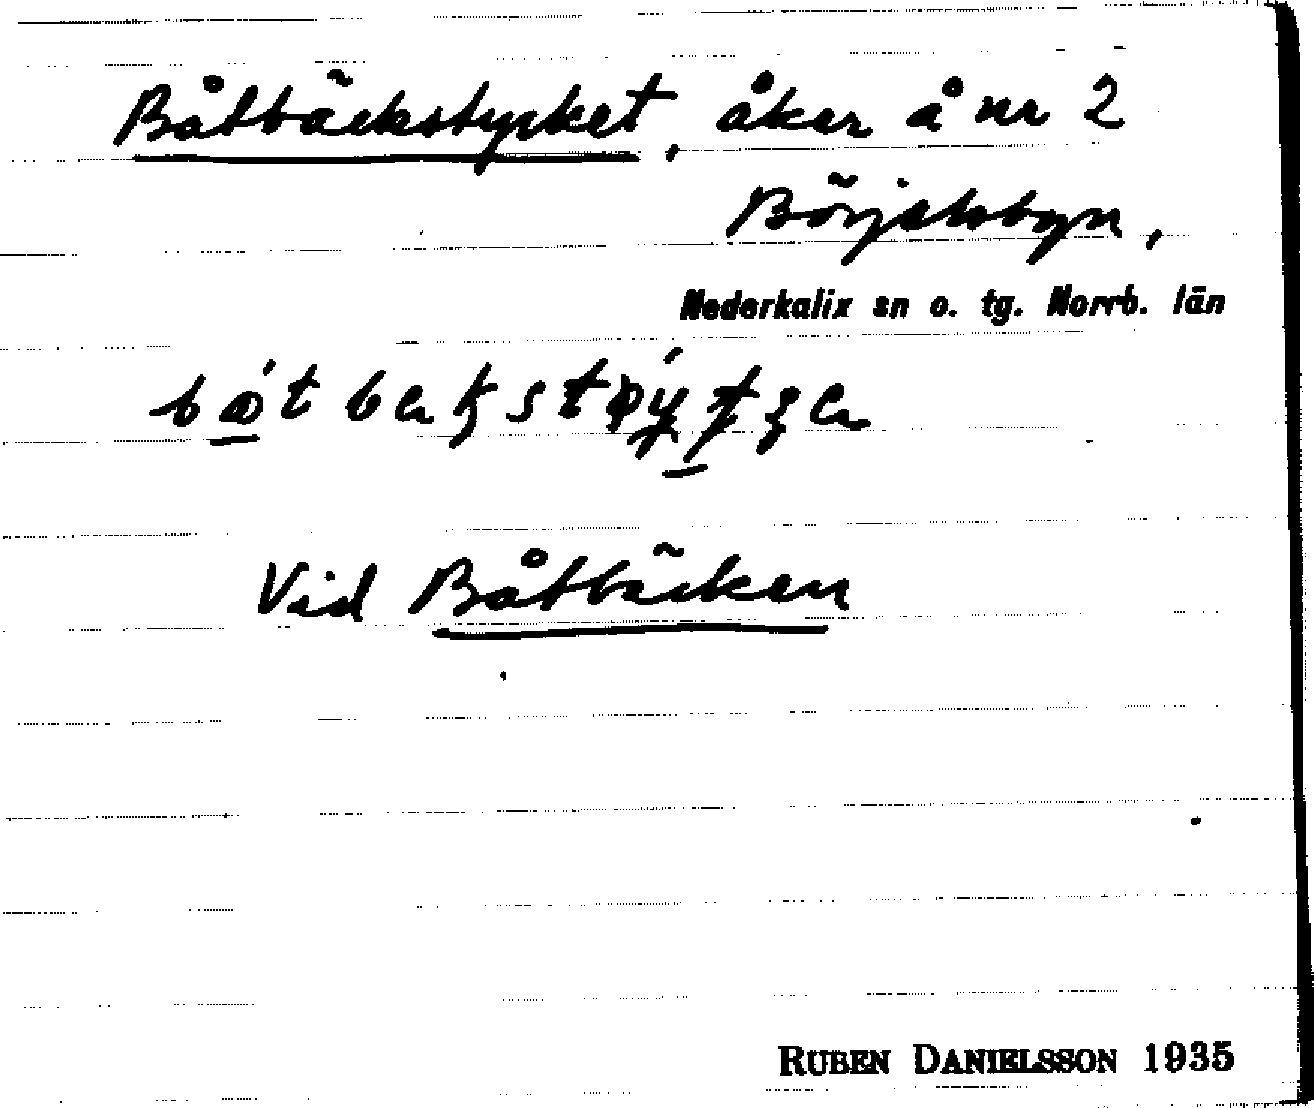 Båtbäckstycket, åker å nr 2
Börjelsbyn,
Nederkalix sn o. tg. Norrb. län
Vid Båtbäcken
RUBEN DANIELSSON 1935